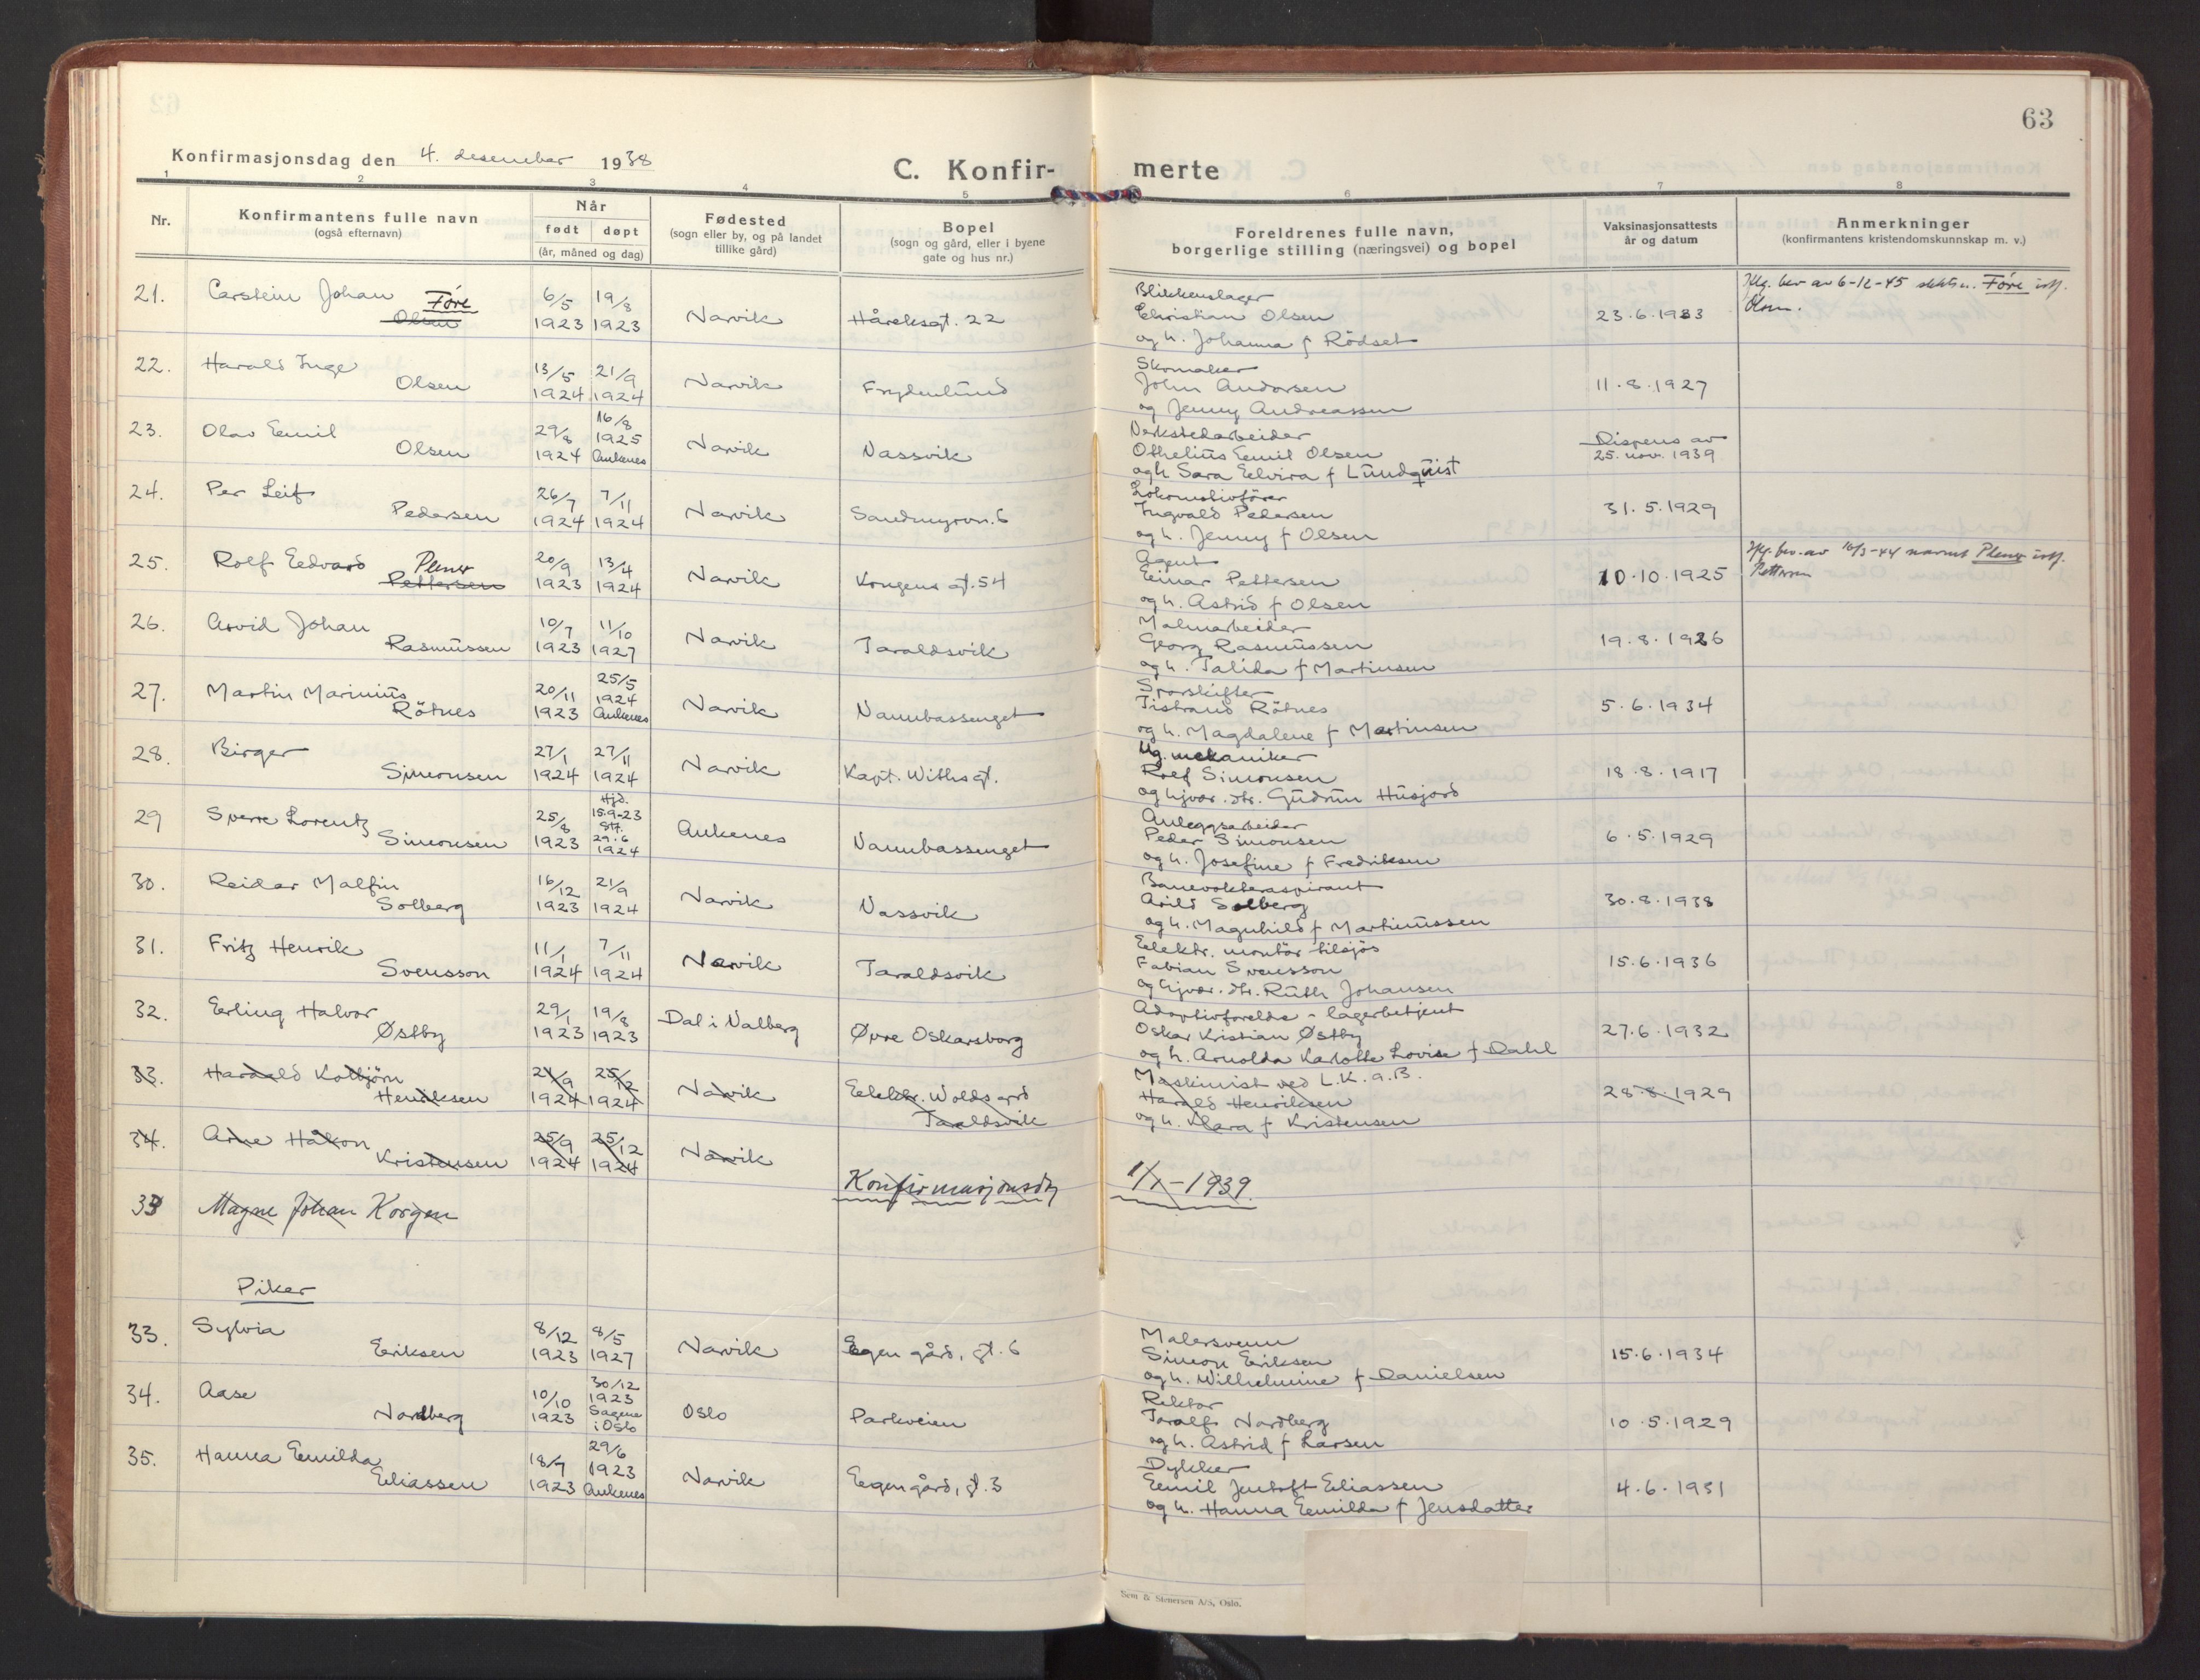 63
Konfirmasjonsdag den 4. desember 1938
C. Konfir-merte
1 2 3 4 5 6 7 8
Nr.
Konfirmantens fulle navn
(også efternavn)
Når
født døpt
(år, måned og dag)
Fødested
(sogn eller by, og på landet
tillike gård)
Bopel
(sogn og gård, eller i byene
gate og hus nr.)
Foreldrenes fulle navn,
borgerlige stilling (næringsvei) og bopel
Vaksinasjonsattests
år og datum
Anmerkninger
(konfirmantens kristendomskunnskap m. v.)
21. Carstein Johan Føre
Olsen
6/5 1923
19/8 1923
Narvik
Håreksgt. 22
Blikkenslager
Christian Olsen
og h. Johanna f Rödset
23.6.1933
av 6-12-45 slektsn. Føre istf.
Olsen.
22. Harald Inge
Olsen
13/5 1924
21/9 1924
Narvik
Frydenlund
Skomaker
John Andorsen
og Jenny Andreassen
11.8.1927
23. Olav Emil
Olsen
29/8 1924
16/8 1925 Ankenes
Narvik
Vassvik
Verkstedarbeider
Othelius Emil Olsen
og h Sara Elvira f Lundquist
Dispens av
25. nov. 1939
24. Per Leif
Pedersen
26/7 1924
7/11 1924
Narvik
Sandmyrvn. 6
Lokomotivfører
Ingvald Pedersen
og h. Jenny f Olsen
31.5.1929
25. Rolf Edvard Plener
Pettersen
20/9 1923
13/4 1924
Narvik
Kongens gt. 54
Agent
Einar Pettersen
og h. Astrid f Olsen
10.10.1925
bev. av 16/3-44 navnet Plener istf.
Pettersen
26. Arvid Johan
Rasmussen
10/7 1923
11/10 1927
Narvik
Taraldsvik
Malmarbeider
Georg Rasmussen
og h. Talida f Martinsen
19.8.1926
27. Martin Marinius
Rötnes
20/11 1923
25/5 1924 Ankenes
Narvik
Vannbassenget
Sporskifter
Tistrand Rötnes
og h. Magdalene f Martinsen
5.6.1934
28. Birger
Simonsen
27/1 1924
27/11 1924
Narvik
Kapt. Withsgt.
Ug. mekaniker
Rolf Simonsen
og hjvær. dtr. Gudrun Husjord
18.8.1917
29 Sverre Lorentz
Simonsen
25/8 1923
Hjd. 15.9-23
Stf. 29.6 1924
Ankenes
Vannbassenget
Anleggsarbeider
Peder Simonsen
og h. Josefine f Fredriksen
6.5.1929
30. Reidar Malfin
Solberg
16/12 1923
21/9 1924
Narvik
Vassvik
Banevokteraspirant
Arild Solberg
og h. Magnhild f Martinussen
30.8.1938
31. Fritz Henrik
Svensson
11/1 1924
7/11 1924
Narvik
Taraldsvik
Elektr. montör tilsjös
Fabian Svensson
og hjvær. dtr. Ruth Johansen
15.6.1936
32. Erling Halvor
Østby
29/1 1923
19/8 1923
Dal i Valberg
Øvre Oskarsborg
Adoptivforeldre - lagerbetjent
Oskar Kristian Østby
og h. Arnolda Karlotte Lovise f Dahl
27.6.1932
33. Harald Kolbjörn
Henriksen
21/9 1924
25/12 1924
Narvik
Elektr. Woldsgrd
Taraldsvik
Maskinist ved L.K.a.B.
Harald Henriksen
og h. Klara f Kristensen
28.8.1929
34. Arne Håkon
Kristensen
25/9 1924
25/12 1924
Narvik
Konfirmasjonsdg 1/X-1939.
33 Magne Johan Korgen
Piker
33. Sylvia
Eriksen
8/12 1923
8/5 1927
Narvik
Egen gård, gt. 6
Malersvenn
Simon Eriksen
og h. Wilhelmine f Danielsen
15.6.1934
34. Aase
Nordberg
10/10 1923
30/12 1923 Sagene i Oslo
Oslo
Parkveien
Rektor
Toralf Nordberg
og h. Astrid f Larsen
10.5.1929
35. Hanna Emilda
Eliassen
18/7 1923
29/6 1923 Ankenes
Narvik
Egen gård, gt. 3
Dykker
Emil Jentoft Eliassen
og h. Hanna Emilda f Jensdatter
4.6.1931
Sem & Stenersen A/S, Oslo.